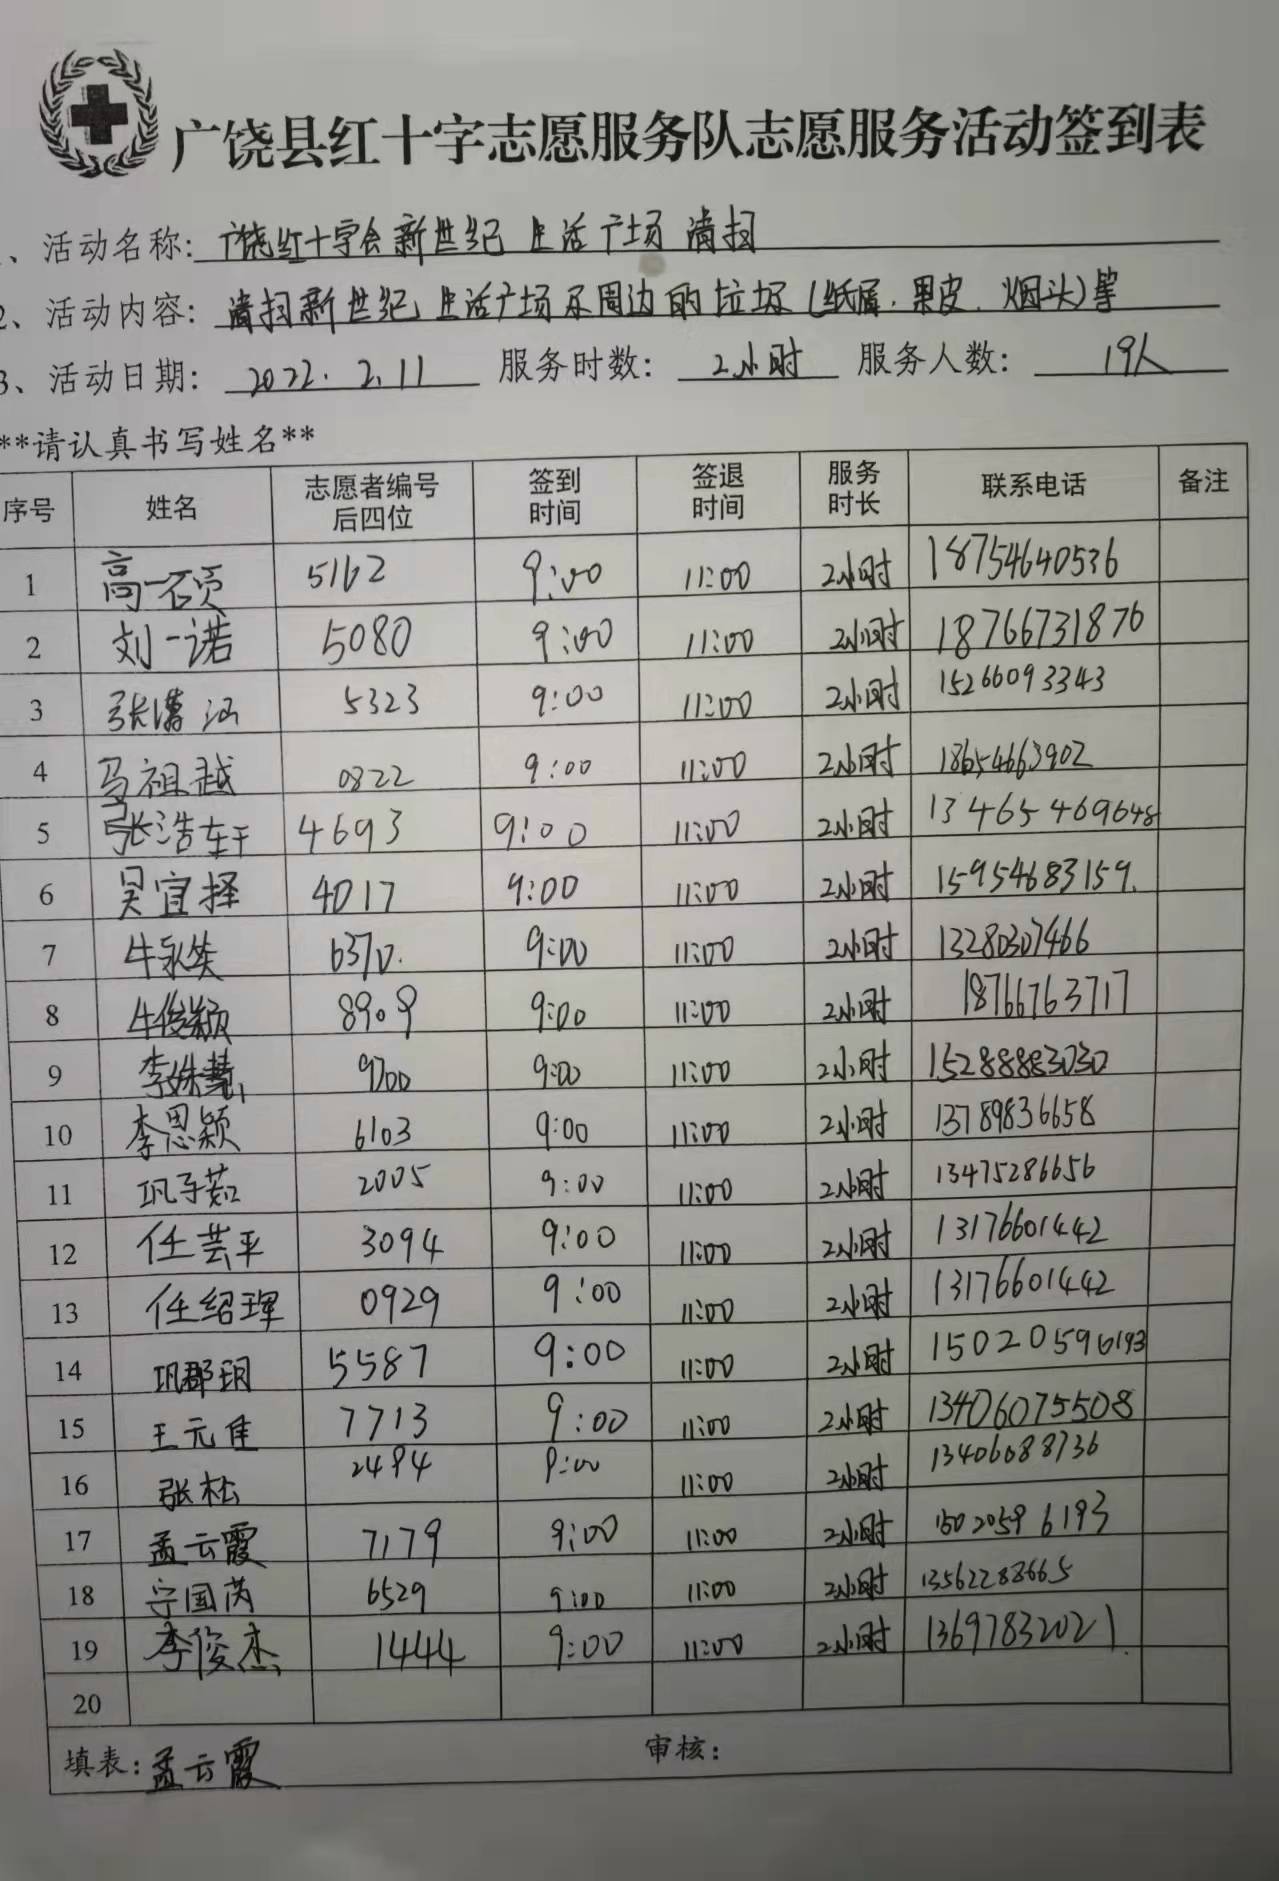 广饶县红十字志愿服务队志愿服务活动签到表
、活动名称: 广饶红十字会新世纪生活广场清扫
2、活动内容: 清扫新世纪生活广场及周边的垃圾(纸屑、果皮、烟头)等
3、活动日期: 2022.2.11 服务时数: 2小时 服务人数: 19人
**请认真书写姓名**
序号 姓名 志愿者编号后四位 签到时间 签退时间 服务时长 联系电话 备注
1 高一硕 5162 9:00 11:00 2小时 18754640536
2 刘一诺 5080 9:00 11:00 2小时 18766731876
3 张潇涵 5323 9:00 11:00 2小时 15266093343
4 马祖越 0822 9:00 11:00 2小时 18654663902
5 张浩轩 4693 9:00 11:00 2小时 13465469648
6 吴宜择 4017 9:00 11:00 2小时 15954683159.
7 牛永笑 6370. 9:00 11:00 2小时 13280307466
8 牛俊颖 8909 9:00 11:00 2小时 18766763717
9 李姝慧 9700 9:00 11:00 2小时 15288883030
10 李思颖 6103 9:00 11:00 2小时 13789836658
11 巩子茹 2005 9:00 11:00 2小时 13475286656
12 任芸平 3094 9:00 11:00 2小时 13176601442
13 任绍珲 0929 9:00 11:00 2小时 13176601442
14 巩郡玥 5587 9:00 11:00 2小时 15020596193
15 王元佳 7713 9:00 11:00 2小时 13406075508
16 张松 2494 9:00 11:00 2小时 13406088736
17 孟云霞 7179 9:00 11:00 2小时 15020596193
18 宁国芮 6529 9:00 11:00 2小时 13562288665
19 李俊杰 1444 9:00 11:00 2小时 13697832021.
20
填表: 孟云霞 审核: